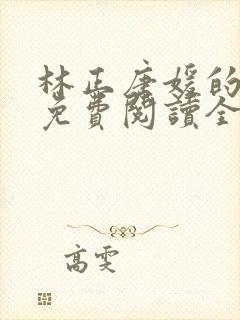 林正唐媛的
免費閱讀全
高雯